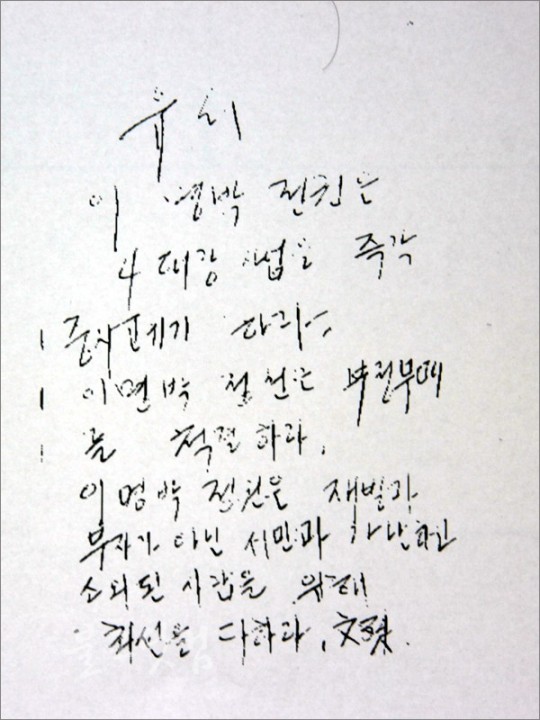 유서
이 명박 정권은
4대강 사업을 즉각
중지 폐기 하라,
이명박 정권은 부정부패
를 척결하라.
이명박 정권은 재벌과
부자가 아닌 서민과 가난하고
소외된 사람을 위해
최선을 다하라. 文殊.